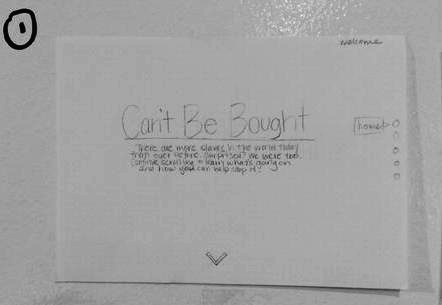 1
welcome
Can't Be Bought
home
There are more slaves in the world today
than ever before. Surprised? We were too.
Continue scrolling to learn what's going on
and how you can help stop it!